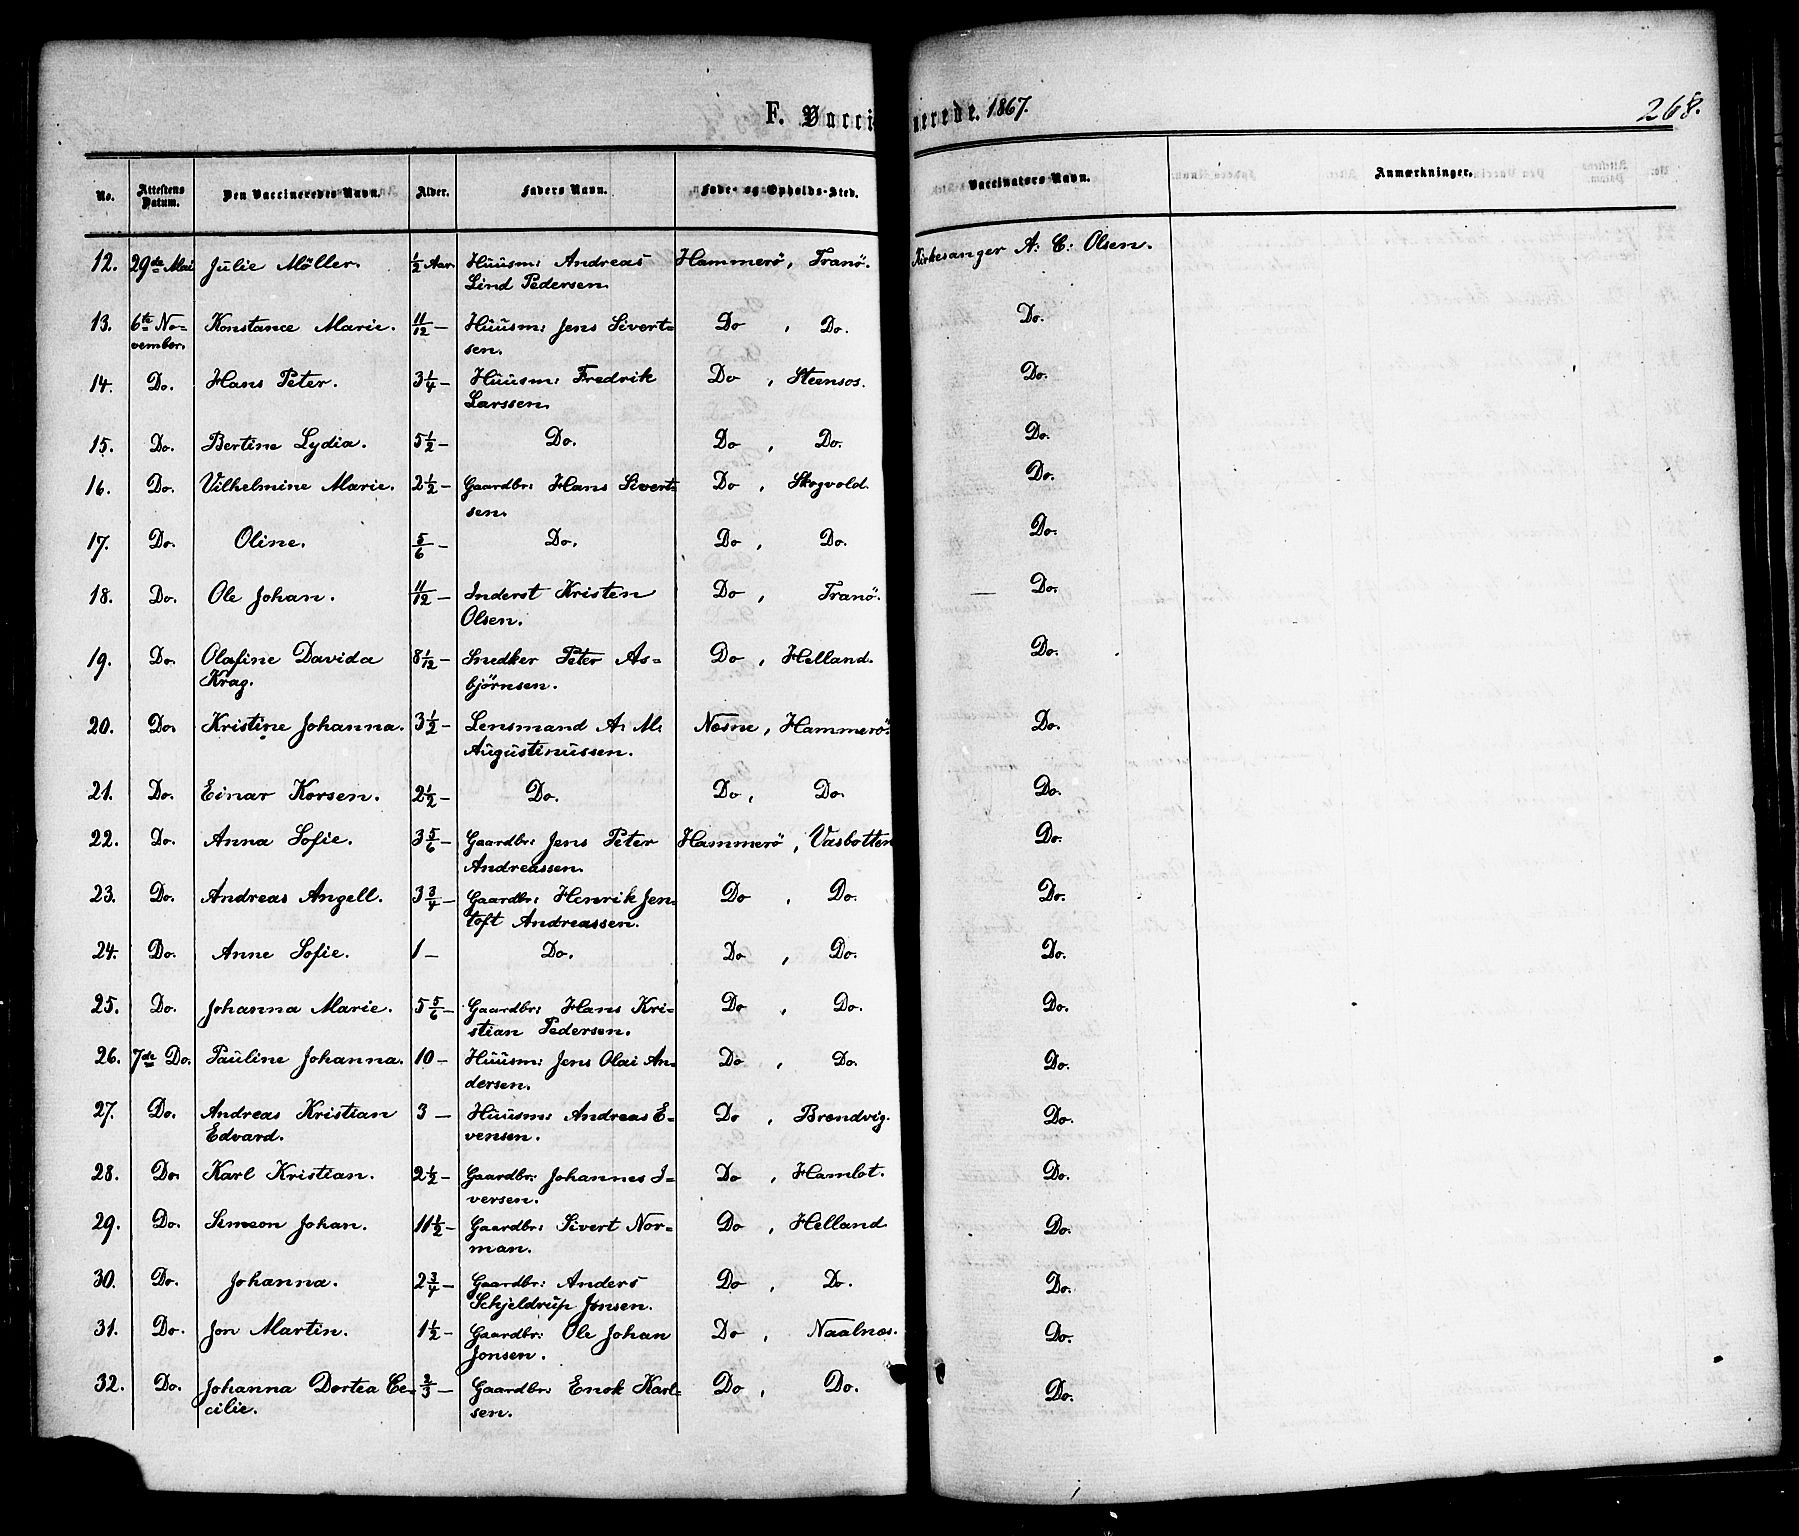 F. Vaccinerede. 1867.
268.
No. Attestens Datum. Den Vaccineredes Navn. Alder. Faders Navn. Føde- og Opholds-Sted. Vaccinators Navn. Anmærkninger.
12. 29de Mai Julie Möller. 1/2 Aar. Huusm: Andreas Hammerö, Tranö. Kirkesanger A: C: Olsen.
Lind Pedersen.
13. 6te No- Konstance Marie. 11/12 — Huusm: Jens Sivert- Do , Do. Do.
vember. sen.
14. Do. Hans Peter. 3 1/4 — Huusm: Fredrik Do , Steensos. Do.
Larssen.
15. Do. Bertine Lydia. 5 1/2 — Do. Do , Do. Do.
16. Do. Vilhelmine Marie. 2 1/2 — Gaardbr: Hans Sivert- Do , Skogvold. Do.
sen.
17. Do. Oline. 5/6 — Do. Do , Do. Do.
18. Do. Ole Johan. 11/12 — Inderst Kristen Do , Tranö. Do.
Olsen.
19. Do. Olafine Davida 8 1/12 — Snedker Peter As- Do , Helland. Do.
Krag. björnsen.
20. Do. Kristine Johanna. 3 1/2 — Lensmand A: M: Næsne, Hammerö. Do.
Augustinussen.
21. Do. Einar Korsen. 2 1/2 — Do. Do , Do. Do.
22. Do. Anna Sofie. 3 5/6 — Gaardbr: Jens Peter Hammerö, Vasbotten Do.
Andreassen.
23. Do. Andreas Angell. 3 3/4 — Gaardbr: Henrik Jen- Do , Do. Do.
toft Andreassen.
24. Do. Anne Sofie. 1 — Do. Do , Do. Do.
25. Do. Johanna Marie. 5 5/6 — Gaardbr: Hans Kri- Do , Do. Do.
stian Pedersen.
26. 7de Do. Pauline Johanna. 10 — Huusm: Jens Olai An- Do , Do. Do.
dersen.
27. Do. Andreas Kristian 3 — Huusm: Andreas E- Do , Brendvig. Do.
Edvard. vensen.
28. Do. Karl Kristian. 2 1/2 — Gaardbr: Johannes I- Do , Hamlot. Do.
versen.
29. Do. Simeon Johan. 11 1/2 — Gaardbr: Sivert Nor- Do , Helland. Do.
man.
30. Do. Johanna. 2 3/4 — Gaardbr: Anders Do , Do. Do.
Schjeldrup Jonsen.
31. Do. Jon Martin. 1 1/2 — Gaardbr: Ole Johan Do , Naalnæs. Do.
Jonsen.
32. Do. Johanna Dortea Ce- 2/3 — Gaardbr: Enok Karl- Do , Do. Do.
cilie. sen.